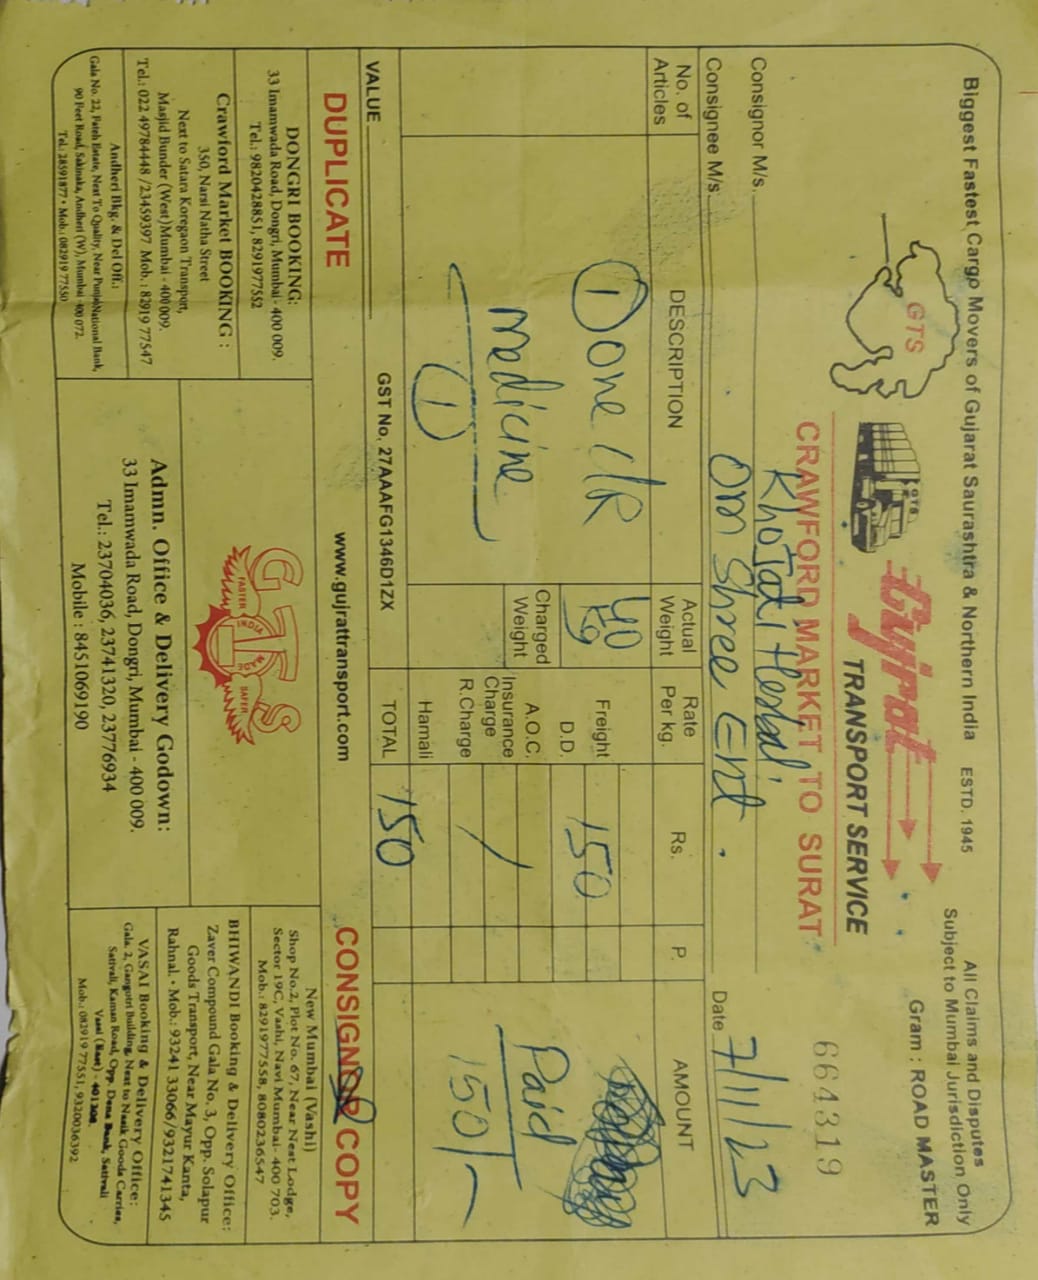 Biggest Fastest Cargo Movers of Gujarat Saurashtra & Northern India ESTD. 1945
All Claims and Disputes
Subject to Mumbai Jurisdiction Only
Gram : ROAD MASTER
GTS
GTS
Gujrat
TRANSPORT SERVICE
664319
CRAWFORD MARKET TO SURAT
Consignor M/s. Herbal
Consignee M/s. Om Shree Ent. Date 7/11/23
No. of Articles DESCRIPTION Actual Weight Rate Per kg. Rs. P. AMOUNT
① One C/R
medicine
①
40 kg
Charged Weight
Freight 150
D.D.
A.O.C.
Insurance Charge
R.Charge
Hamali
TOTAL 150
Paid
150/-
VALUE
GST No. 27AAAFG1346D1ZX
DUPLICATE www.gujrattransport.com CONSIGNOR COPY
DONGRI BOOKING:
33 Imamwada Road, Dongri, Mumbai - 400 009.
Tel.: 9820428851, 8291977552
Crawford Market BOOKING :
350, Narsi Natha Street
Next to Satara Koregaon Transport,
Masjid Bunder (West)Mumbai - 400 009.
Tel.: 022 49784448 /23459397 Mob.: 82919 77547
Andheri Bkg. & Del Off.:
Gala No. 22, Fateh Estate, Next To Quality, Near Punjab National Bank,
90 Feet Road, Sakinaka, Andheri (W), Mumbai 400 072.
Tel.: 28591877 • Mob.: 082919 77550
GTS
FASTER INDIA SAFER
Admn. Office & Delivery Godown:
33 Imamwada Road, Dongri, Mumbai - 400 009.
Tel.: 23704036, 23741320, 23776934
Mobile : 8451069190
New Mumbai (Vashi)
Shop No.2, Plot No. 67, Near Nest Lodge,
Sector 19C, Vashi, Navi Mumbai- 400 703.
Mob.: 8291977558, 8080236547
BHIWANDI Booking & Delivery Office:
Zaver Compound Gala No. 3, Opp. Solapur
Goods Transport, Near Mayur Kanta,
Rahnal. • Mob.: 93241 33066/9321741345
VASAI Booking & Delivery Office:
Gala. 2, Gangotri Building, Next to Nasik Goods Carrier,
Sativali, Kaman Road, Opp. Dena Bank, Sativali
Vasai (East) - 401 208.
Mob.: 082919 77551, 9320036392